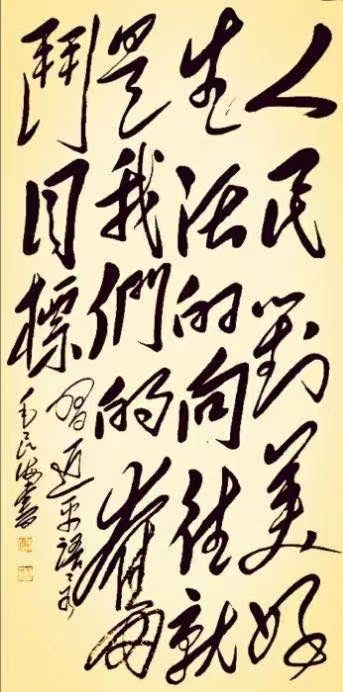 人民對美好
生活的向往就
是我們的奮
鬥目標
習近平語
海書